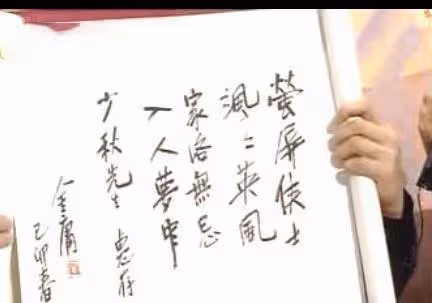 螢屏俠士
颯々英風
家洛無忌
入人夢中
少秋先生 惠存
金庸
己卯春